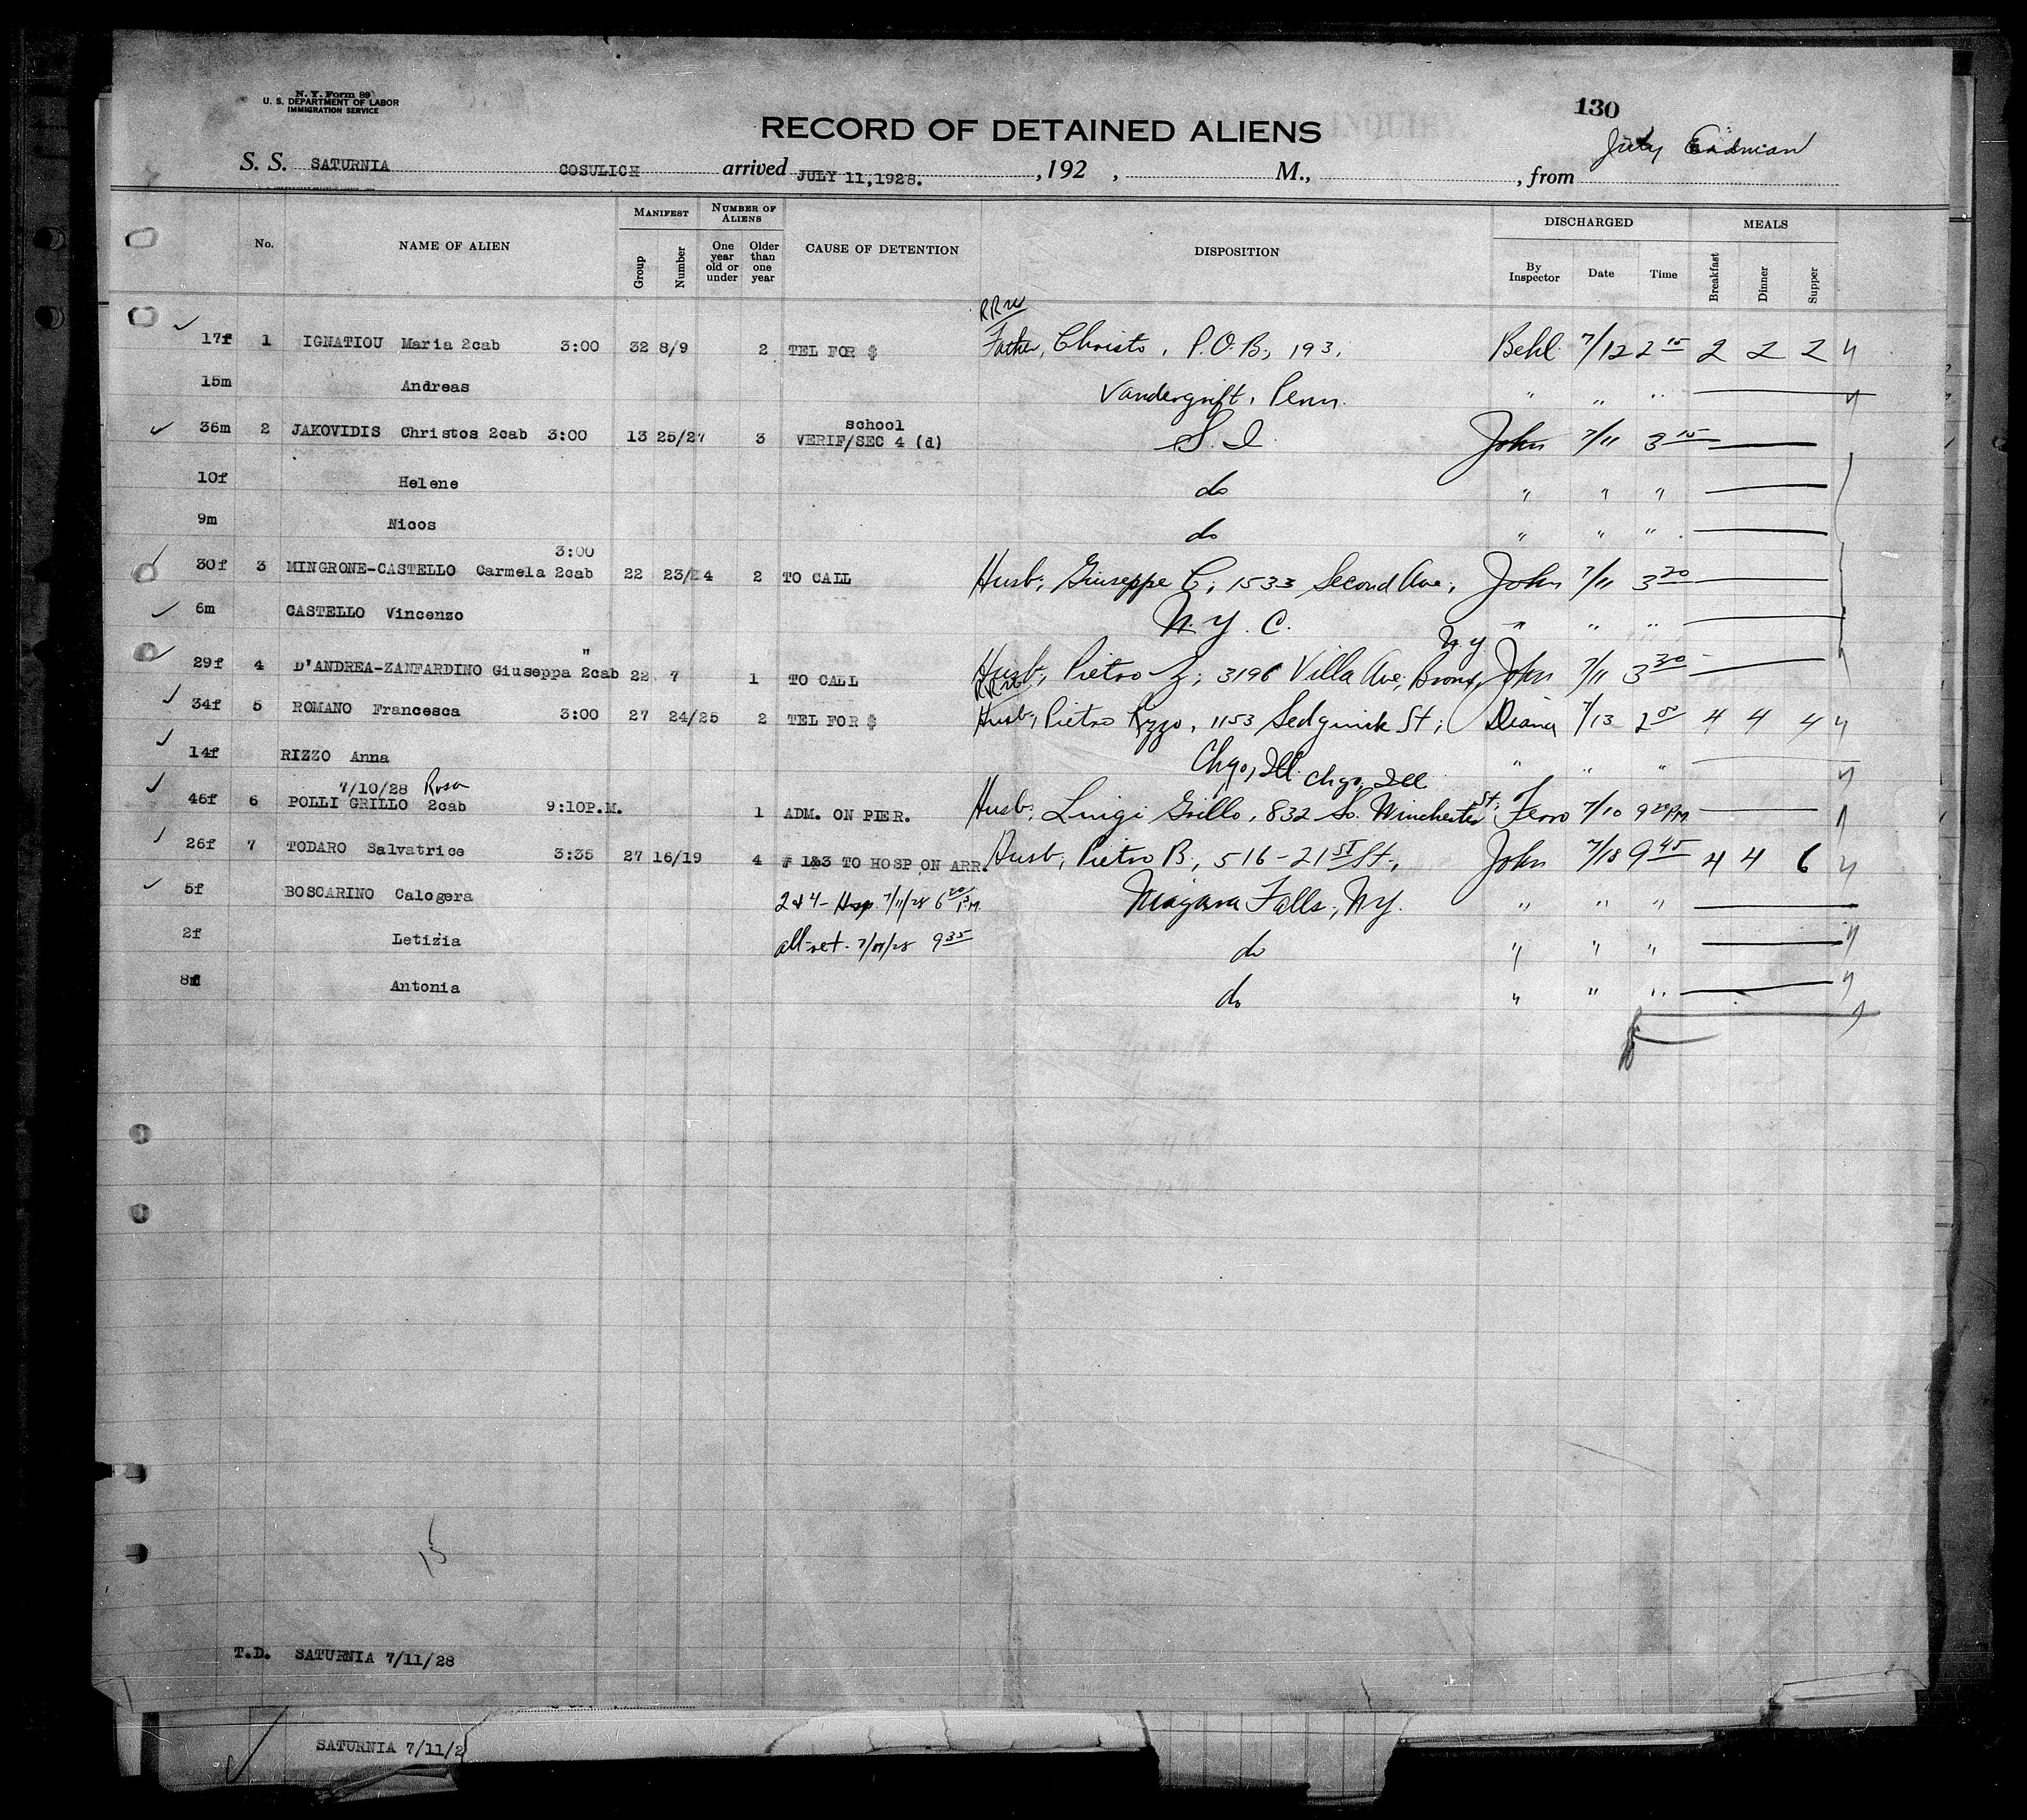 N. Y. Form 89
U. S. DEPARTMENT OF LABOR
IMMIGRATION SERVICE
130
RECORD OF DETAINED ALIENS
S. S. SATURNIA COSULICH arrived JULY 11,1928. , 192 , M., , from
No. NAME OF ALIEN MANIFEST Group Number NUMBER OF ALIENS One year old or under Older than one year CAUSE OF DETENTION DISPOSITION DISCHARGED By Inspector Date Time MEALS Breakfast Dinner Supper
RRW
17f 1 IGNATIOU Maria 2cab 3:00 32 8/9 2 TEL FOR $ Father, Christo, P.O.B., 193, Behl 7/12 2 15 2 2 2
15m Andreas Vandergrift, Penn. " " "
36m 2 JAKOVIDIS Christos 2cab 3:00 13 25/27 3 school VERIF/SEC 4 (d) S. I. John 7/11 3 15
10f Helene do " " "
9m Nicos do " " "
3:00
30f 3 MINGRONE-CASTELLO Carmela 2cab 22 23/24 2 TO CALL Husb; Giuseppe C; 1533 Second Ave; John 7/11 3 20
6m CASTELLO Vincenzo N. Y. C. " " "
29f 4 D'ANDREA-ZANFARDINO Giuseppa 2cab " 22 7 1 TO CALL Husb, Pietro Z; 3196 Villa Ave; Bronx, N.Y. John 7/11 3 30
RRW
34f 5 ROMANO Francesca 3:00 27 24/25 2 TEL FOR $ Husb, Pietro Rizzo, 1153 Sedgwick St; Diana 7/13 2 00 4 4 4
14f RIZZO Anna Chgo, Ill. " " "
7/10/28 Rosa Chgo, Ill.
46f 6 POLLI GRILLO 2cab 9:10P.M. 1 ADM. ON PIER. Husb; Luigi Grillo, 832 So. Winchester St; Ferro 7/10 9 20 P.M.
26f 7 TODARO Salvatrice 3:35 27 16/19 4 # 1&3 TO HOSP ON ARR. Husb, Pietro B, 516 - 21ST St., John 7/18 9 45 4 4 6
5f BOSCARINO Calogera 2 & 4 - Hosp. 7/11/28 6 20 P.M. Niagara Falls, N.Y. " " "
2f Letizia all-ret. 9 35 do " " "
8f Antonia do " " "
15
T.D. SATURNIA 7/11/28
SATURNIA 7/11/2